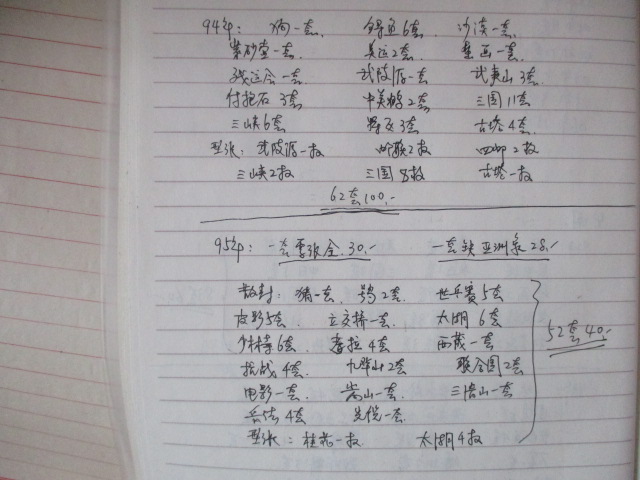 94年: 狗一套. 鲟鱼6套 沙漠一套.
紫砂壶一套. 奥运2套 鹤画一套.
残运会一套 武陵源一套 武夷山3套.
付抱石3套 中美鹤2套 三国11套
三峡6套 3套 古塔4套.
型张: 武陵源一枚 邮联2枚 四邮2枚
三峡2枚 三国8枚 古塔一枚
62套100.-
95年: 一套票张全.30.- 一套缺亚洲象28.-
散封: 猪一套. 鹤2套 世乒赛5套
皮影5套 立交桥一套. 太湖6套
少林寺6套. 香拉4套 西藏一套
抗战4套. 九华山2套 联合国2套
电影一套. 嵩山一套. 三清山一套
兵法4套 先锐一套.
型张: 桂花一枚 太湖4枚
52套40.-